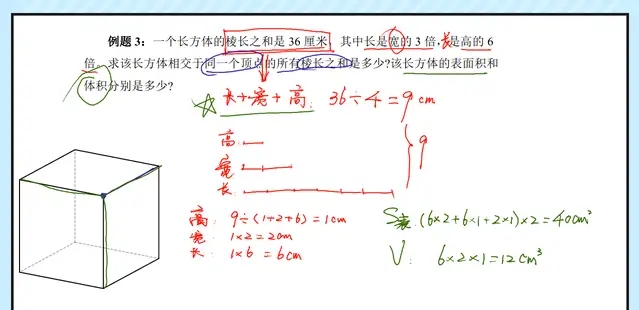 例题 3：一个长方体的棱长之和是 36 厘米，其中长是宽的 3 倍，长是高的 6
倍。求该长方体相交于同一个顶点的所有棱长之和是多少?该长方体的表面积和
体积分别是多少?
长+宽+高: 36÷4=9cm
高:
宽:
长:
9
高: 9÷(1+2+6)=1cm
宽: 1×2=2cm
长: 1×6=6cm
S表: (6×2+6×1+2×1)×2=40cm²
V: 6×2×1=12cm³